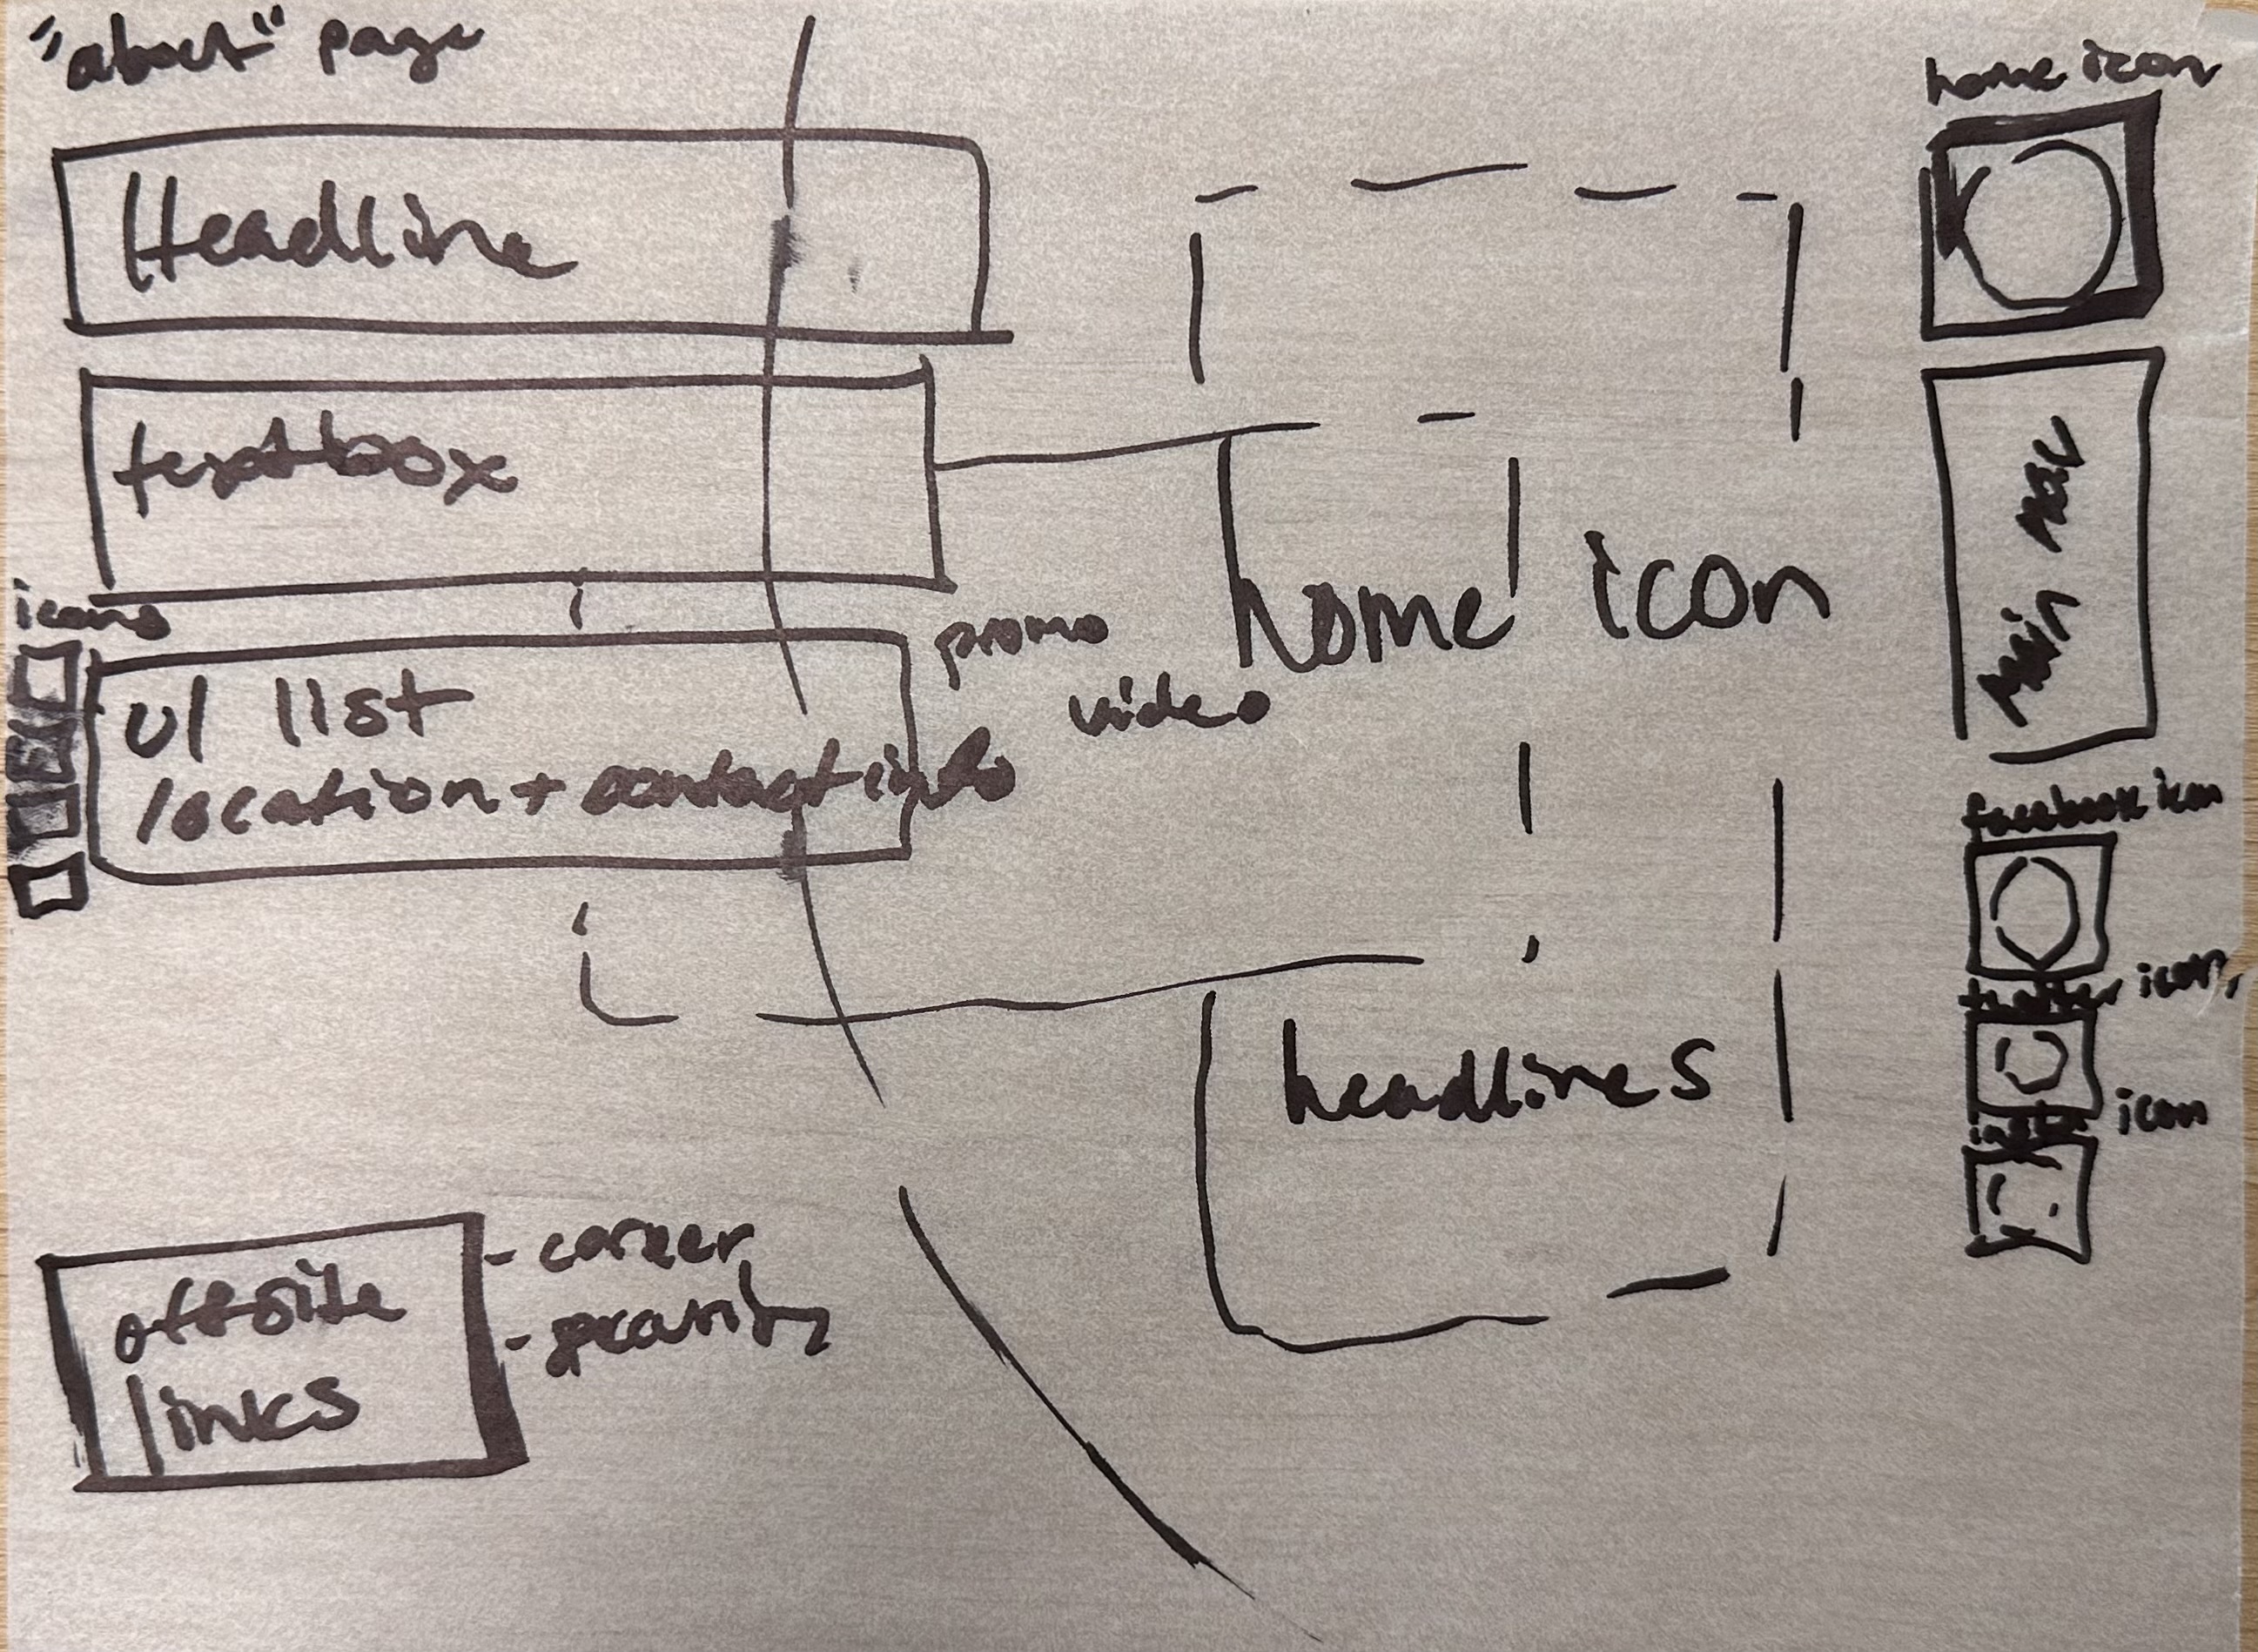 "about" page
Headline
textbox
icons
ul list
location + contact info
promo
video
offsite
links
- career
- security
home icon
headlines
home icon
Main nav
facebook icon
twitter icon
insta icon